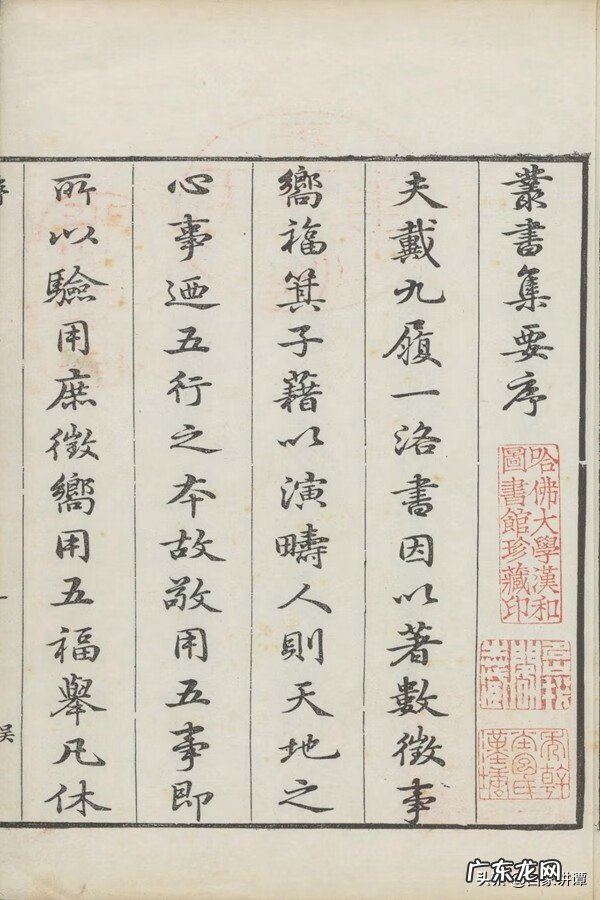 叢書集要序
夫戴九履一洛書因以著數徵事
嚮福箕子藉以演疇人則天地之
心事迺五行之本故敬用五事即
所以驗用庶徵嚮用五福舉凡休
哈佛大學漢和
圖書館珍藏印
广东龙网